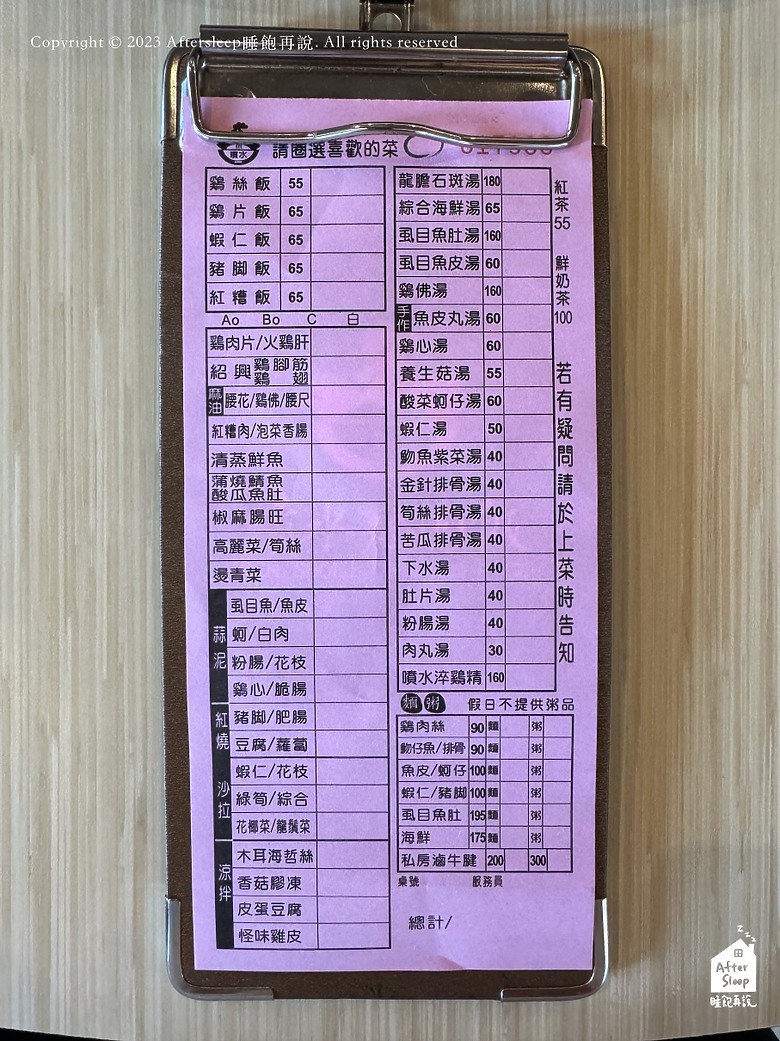 Copyright © 2023 Aftersleep睡飽再說. All rights reserved
噴水
請圈選喜歡的菜
鷄絲飯 55
鷄片飯 65
蝦仁飯 65
豬脚飯 65
紅糟飯 65
Ao Bo C 白
鷄肉片/火鷄肝
紹興 鷄腳筋 鷄翅
麻油 腰花/鷄佛/腰尺
紅糟肉/泡菜香腸
清蒸鮮魚
蒲燒鯖魚
酸瓜魚肚
椒麻腸旺
高麗菜/筍絲
燙青菜
蒜泥
虱目魚/魚皮
蚵/白肉
粉腸/花枝
鷄心/脆腸
紅燒
豬脚/肥腸
豆腐/蘿蔔
沙拉
蝦仁/花枝
綠筍/綜合
花椰菜/龍鬚菜
涼拌
木耳海哲絲
香菇膠凍
皮蛋豆腐
怪味雞皮
龍膽石斑湯 180
綜合海鮮湯 65
虱目魚肚湯 160
虱目魚皮湯 60
鷄佛湯 160
手作 魚皮丸湯 60
鷄心湯 60
養生菇湯 55
酸菜蚵仔湯 60
蝦仁湯 50
魩魚紫菜湯 40
金針排骨湯 40
筍絲排骨湯 40
苦瓜排骨湯 40
下水湯 40
肚片湯 40
粉腸湯 40
肉丸湯 30
噴水淬鷄精 160
紅茶 55
鮮奶茶 100
若有疑問請於上菜時告知
麵 粥 假日不提供粥品
鷄肉絲 90 麵 粥
魩仔魚/排骨 90 麵 粥
魚皮/蚵仔 100 麵 粥
蝦仁/豬脚 100 麵 粥
虱目魚肚 195 麵 粥
海鮮 175 麵 粥
私房滷牛腱 200 300
桌號 服務員
總計/
After
Sleep
睡飽再說